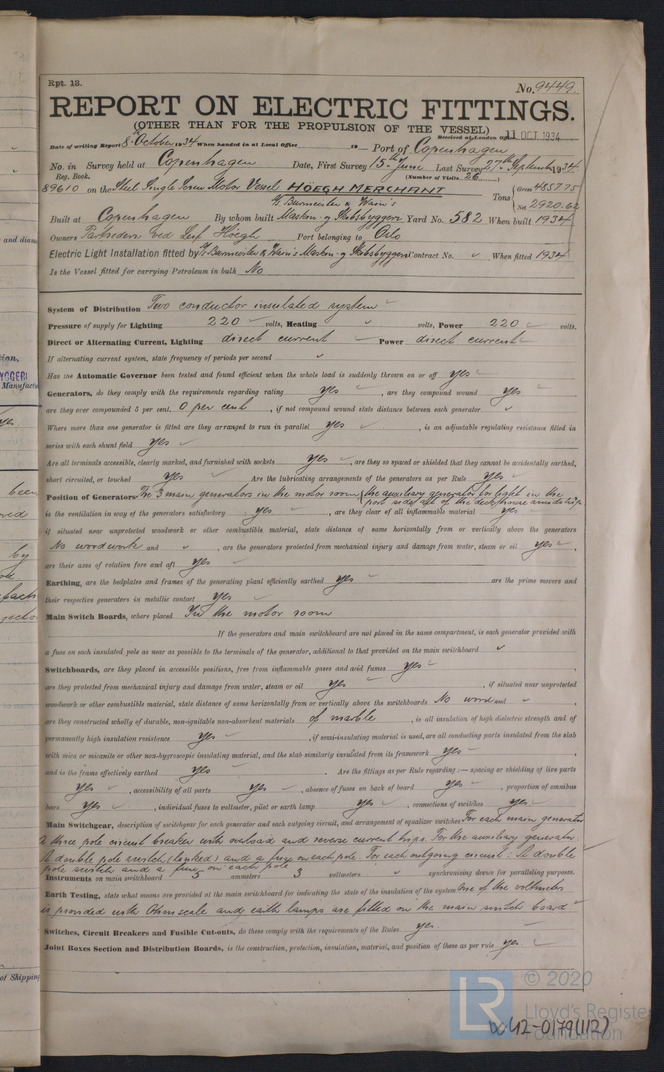 Rpt. 13.
No. 9449
REPORT ON ELECTRIC FITTINGS.
(OTHER THAN FOR THE PROPULSION OF THE VESSEL)
Received at London Office 11 OCT 1934
Date of writing Report 8 October 1934 When handed in at Local Office 19 Port of Copenhagen
No. in Survey held at Copenhagen Date, First Survey 15th June Last Survey 27th September 1934
Reg. Book. (Number of Visits 26
89610 on the Steel Single Screw Motor Vessel HÖEGH MERCHANT Tons { Gross 4857.75
Net 2920.62
Burmeister & Wain's
Built at Copenhagen By whom built Maskin- og Skibsbyggeri Yard No. 582 When built 1934
Owners Partrederi ved Leif Höegh Port belonging to Oslo
Electric Light Installation fitted by Burmeister & Wain's Maskin- og Skibsbyggeri Contract No. When fitted 1934
Is the Vessel fitted for carrying Petroleum in bulk No
System of Distribution Two conductor insulated system
Pressure of supply for Lighting 220 volts, Heating " volts, Power 220 volts.
Direct or Alternating Current, Lighting direct current Power direct current
If alternating current system, state frequency of periods per second "
Has the Automatic Governor been tested and found efficient when the whole load is suddenly thrown on or off yes
Generators, do they comply with the requirements regarding rating yes, are they compound wound yes
are they over compounded 5 per cent. 0 per cent, if not compound wound state distance between each generator "
Where more than one generator is fitted are they arranged to run in parallel yes, is an adjustable regulating resistance fitted in
series with each shunt field yes
Are all terminals accessible, clearly marked, and furnished with sockets yes, are they so spaced or shielded that they cannot be accidentally earthed,
short circuited, or touched yes Are the lubricating arrangements of the generators as per Rule yes
Position of Generators The 3 main generators in the motor room, the auxiliary generator for light in the
port side aft of the deckhouse amidships
is the ventilation in way of the generators satisfactory yes, are they clear of all inflammable material yes
if situated near unprotected woodwork or other combustible material, state distance of same horizontally from or vertically above the generators
No woodwork and ", are the generators protected from mechanical injury and damage from water, steam or oil yes,
are their axes of rotation fore and aft yes
Earthing, are the bedplates and frames of the generating plant efficiently earthed yes are the prime movers and
their respective generators in metallic contact yes
Main Switch Boards, where placed In the motor room
If the generators and main switchboard are not placed in the same compartment, is each generator provided with
a fuse on each insulated pole as near as possible to the terminals of the generator, additional to that provided on the main switchboard "
Switchboards, are they placed in accessible positions, free from inflammable gases and acid fumes yes,
are they protected from mechanical injury and damage from water, steam or oil yes, if situated near unprotected
woodwork or other combustible material, state distance of same horizontally from or vertically above the switchboards No wood and ",
are they constructed wholly of durable, non-ignitable non-absorbent materials of marble, is all insulation of high dielectric strength and of
permanently high insulation resistance yes, if semi-insulating material is used, are all conducting parts insulated from the slab
with mica or micanite or other non-hygroscopic insulating material, and the slab similarly insulated from its framework yes,
and is the frame effectively earthed yes. Are the fittings as per Rule regarding:— spacing or shielding of live parts
yes, accessibility of all parts yes, absence of fuses on back of board yes, proportion of omnibus
bars yes, individual fuses to voltmeter, pilot or earth lamp yes, connections of switches yes.
Main Switchgear, description of switchgear for each generator and each outgoing circuit, and arrangement of equalizer switches For each main generator
A three pole circuit breaker with overload and reverse current trips. For the auxiliary generator:
A double pole switch (linked) and a fuse on each pole. For each outgoing circuit: A double
pole switch and a fuse on each pole
Instruments on main switchboard 5 ammeters 3 voltmeters " synchronising device for paralleling purposes.
Earth Testing, state what means are provided at the main switchboard for indicating the state of the insulation of the system One of the voltmeters
is provided with Ohmscale and earth lamps are fitted on the main switch board
Switches, Circuit Breakers and Fusible Cut-outs, do these comply with the requirements of the Rules yes.
Joint Boxes Section and Distribution Boards, is the construction, protection, insulation, material, and position of these as per rule yes
© 2020
LR Lloyd's Register
Foundation
W412-0179(1/2)